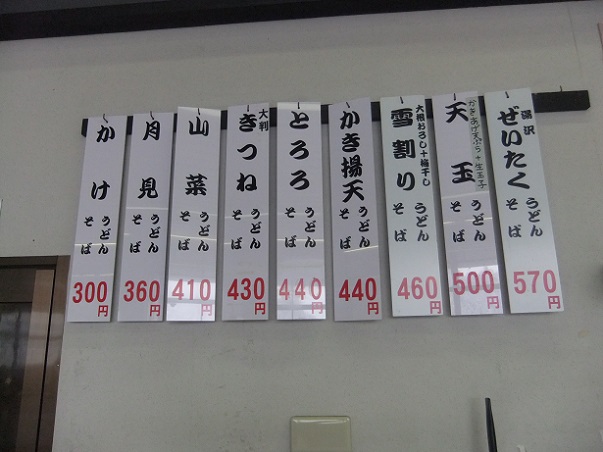 湯沢
ぜいたく
うどん
そば
570円
天玉
かきあげ天ぷら+生玉子
うどん
そば
500円
大根おろし+梅干し
雪割り
うどん
そば
460円
かき揚天
うどん
そば
440円
とろろ
うどん
そば
440円
大判
きつね
うどん
そば
430円
山菜
うどん
そば
410円
月見
うどん
そば
360円
かけ
うどん
そば
300円